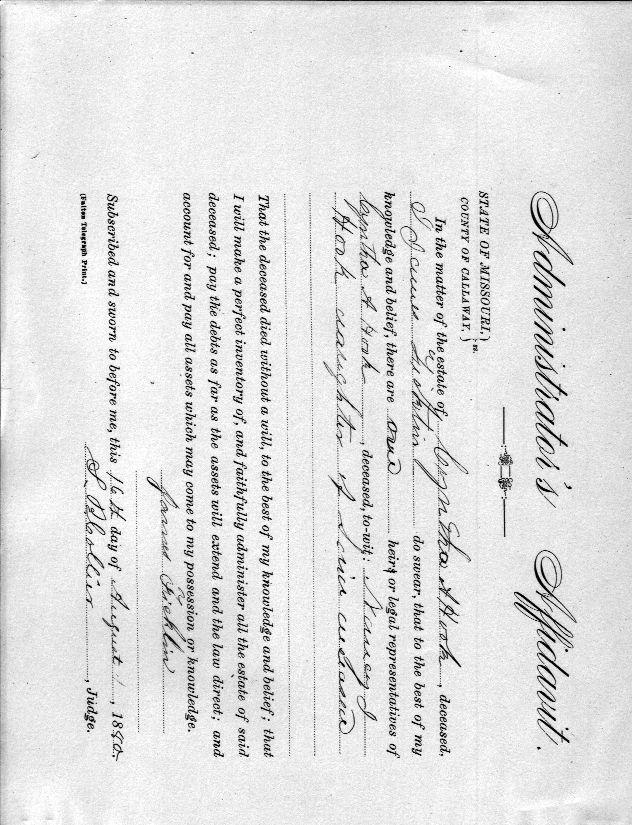 Administrator's Affidavit.
STATE OF MISSOURI, } ss.
COUNTY OF CALLAWAY, }
In the matter of the estate of Cyntha A Hook, deceased,
I James do swear, that to the best of my
knowledge and belief, there are one heirs or legal representatives of
Cyntha A Hook, deceased, to-wit: Nancy J
Hook daughter of
That the deceased died without a will, to the best of my knowledge and belief; that
I will make a perfect inventory of, and faithfully administer all the estate of said
deceased; pay the debts as far as the assets will extend and the law direct; and
account for and pay all assets which may come to my possession or knowledge.
James
Subscribed and sworn to before me, this 16th day of August, 1880.
, Judge.
(Fulton Telegraph Print.)